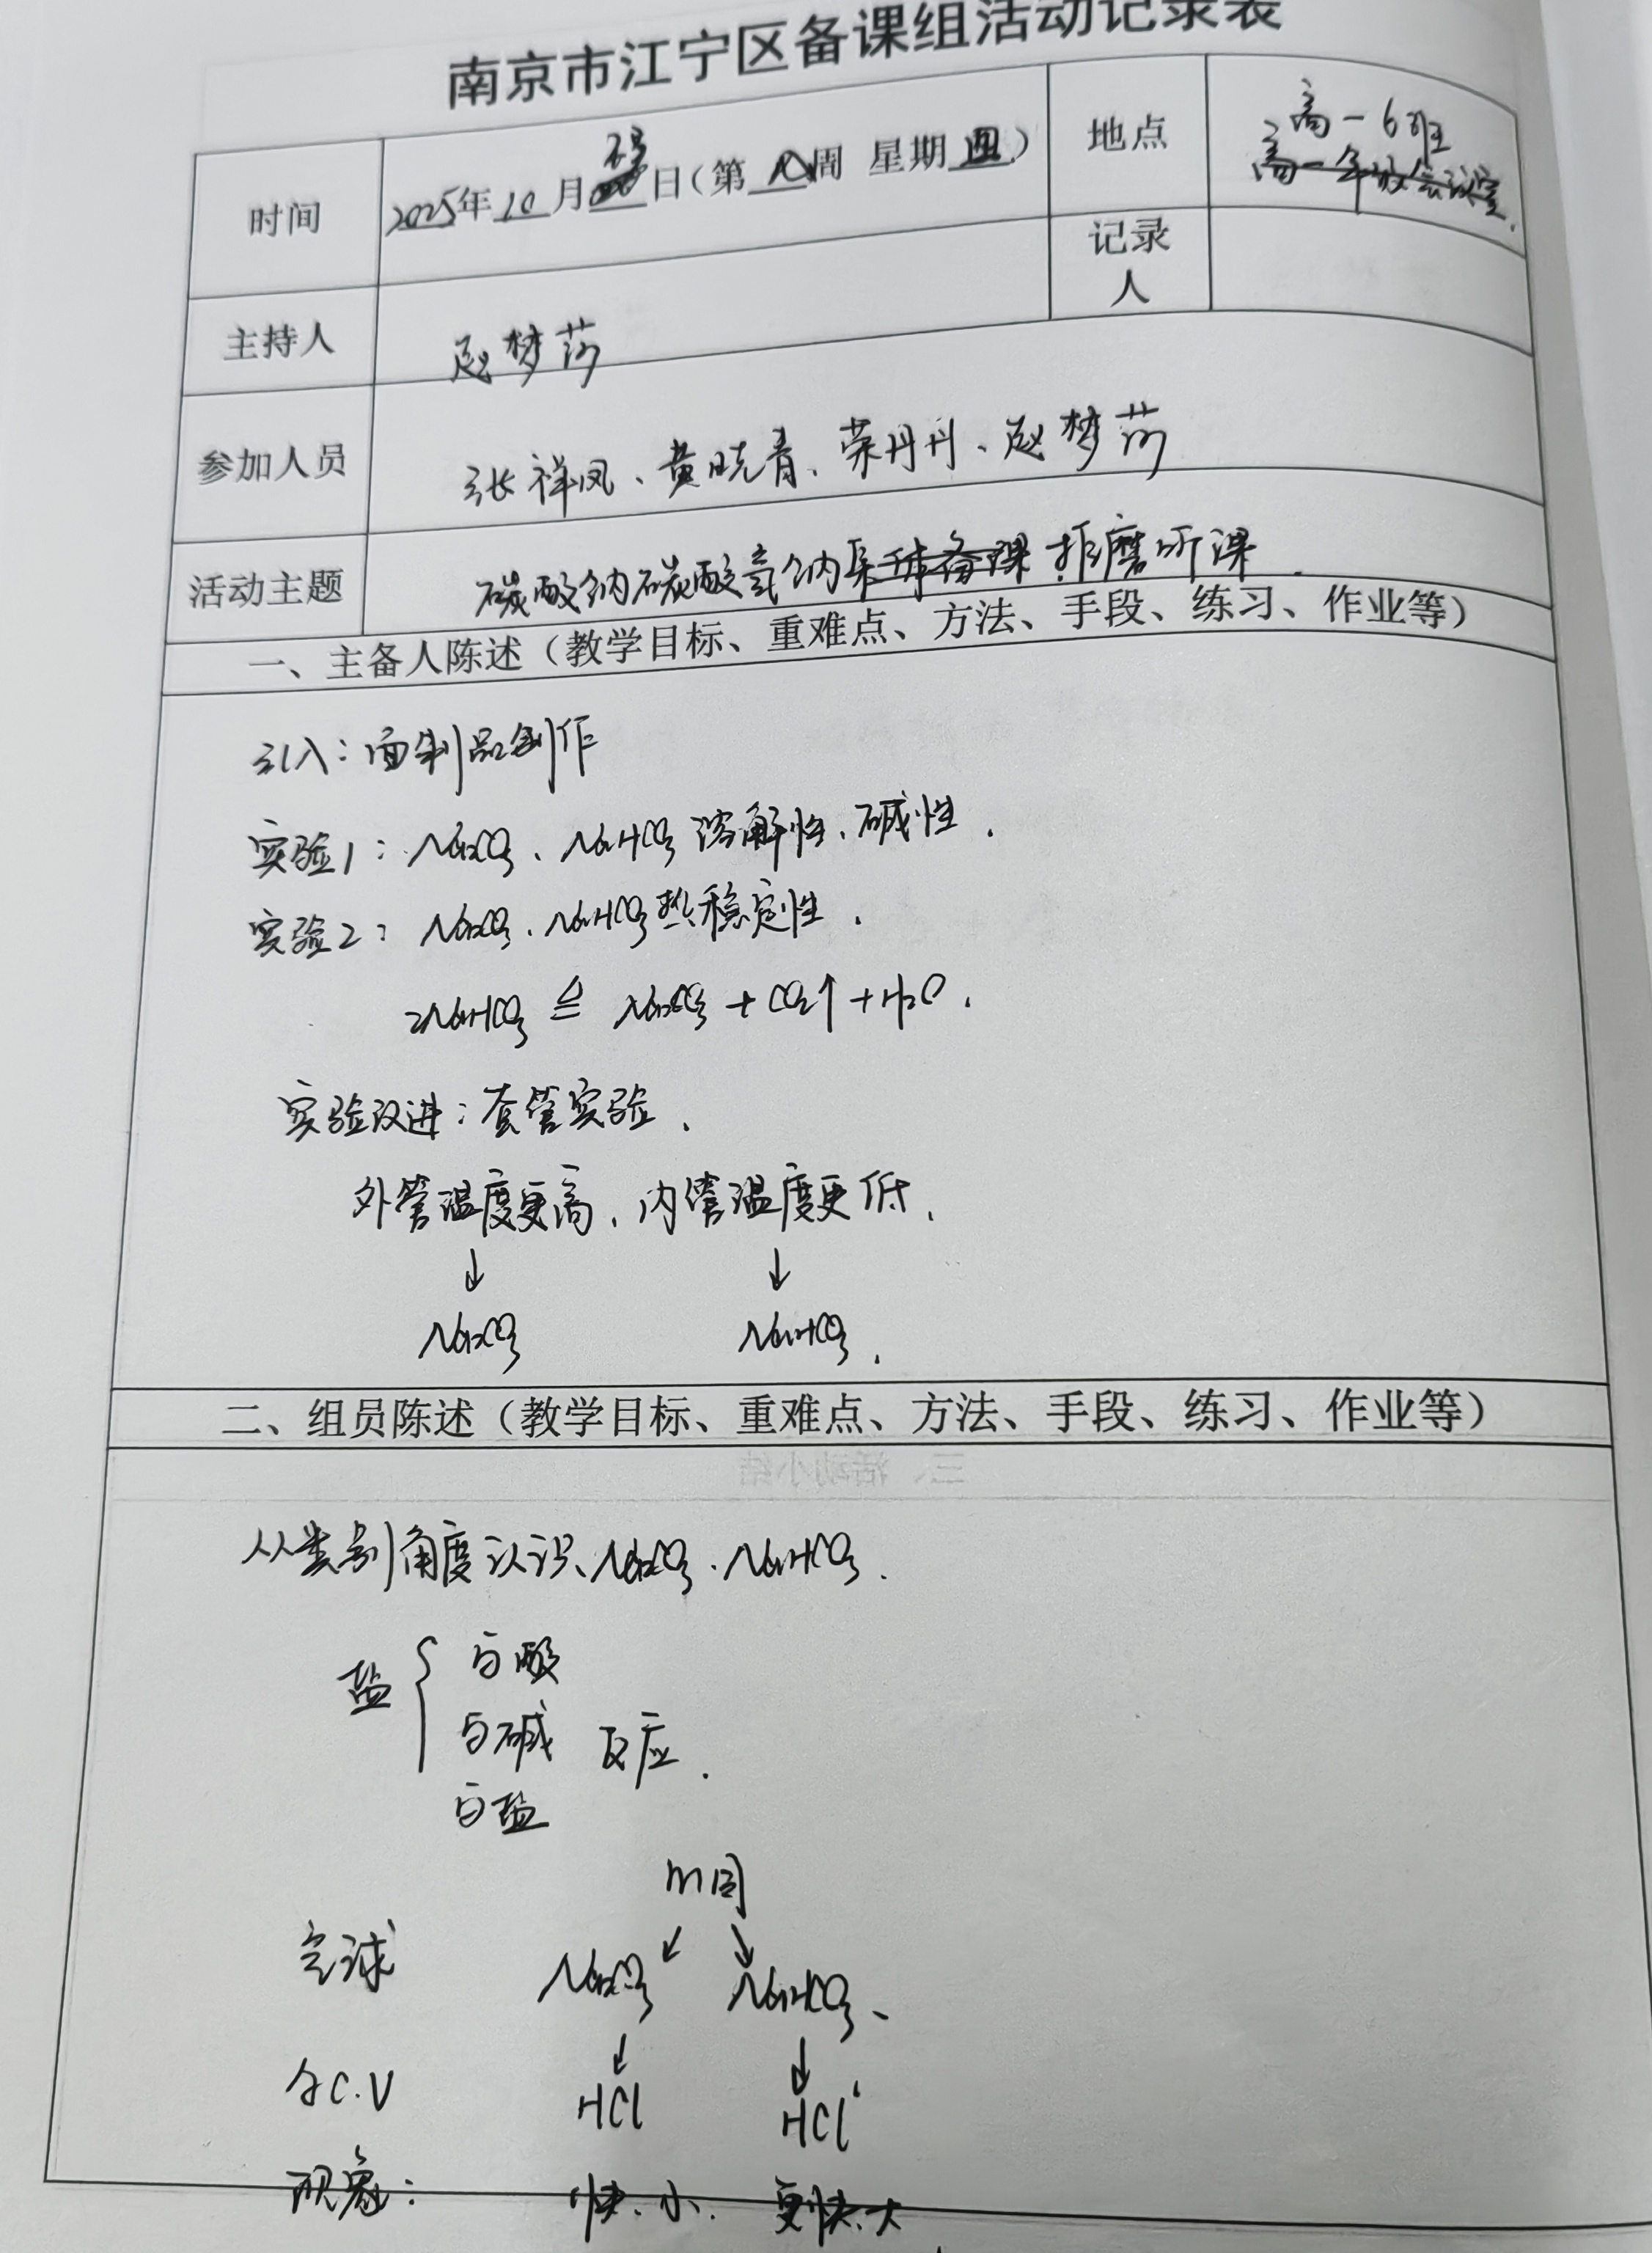 南京市江宁区备课组活动记录表
时间 2025年10月 日(第八周 星期四) 地点 高一6班
高一年级会议室.
记录人
主持人 赵梦莎
参加人员 张祥凤、黄晓青、荣丹丹、赵梦莎
活动主题 碳酸钠碳酸氢钠集体备课 推磨听课.
一、主备人陈述(教学目标、重难点、方法、手段、练习、作业等)
引入:面制品制作
实验1: Na2CO3、NaHCO3溶解性、碱性.
实验2: Na2CO3、NaHCO3热稳定性.
2NaHCO3 ≜ Na2CO3 + CO2↑ + H2O.
实验改进:套管实验.
外管温度更高,内管温度更低.
↓ ↓
Na2CO3 NaHCO3.
二、组员陈述(教学目标、重难点、方法、手段、练习、作业等)
三、活动小结
从类别角度认识Na2CO3、NaHCO3.
盐{ 与酸
与碱 反应.
与盐
m同
↙ ↘
气球 Na2CO3 NaHCO3、
↓ ↓
C.V HCl HCl
现象: 快、小. 更快、大